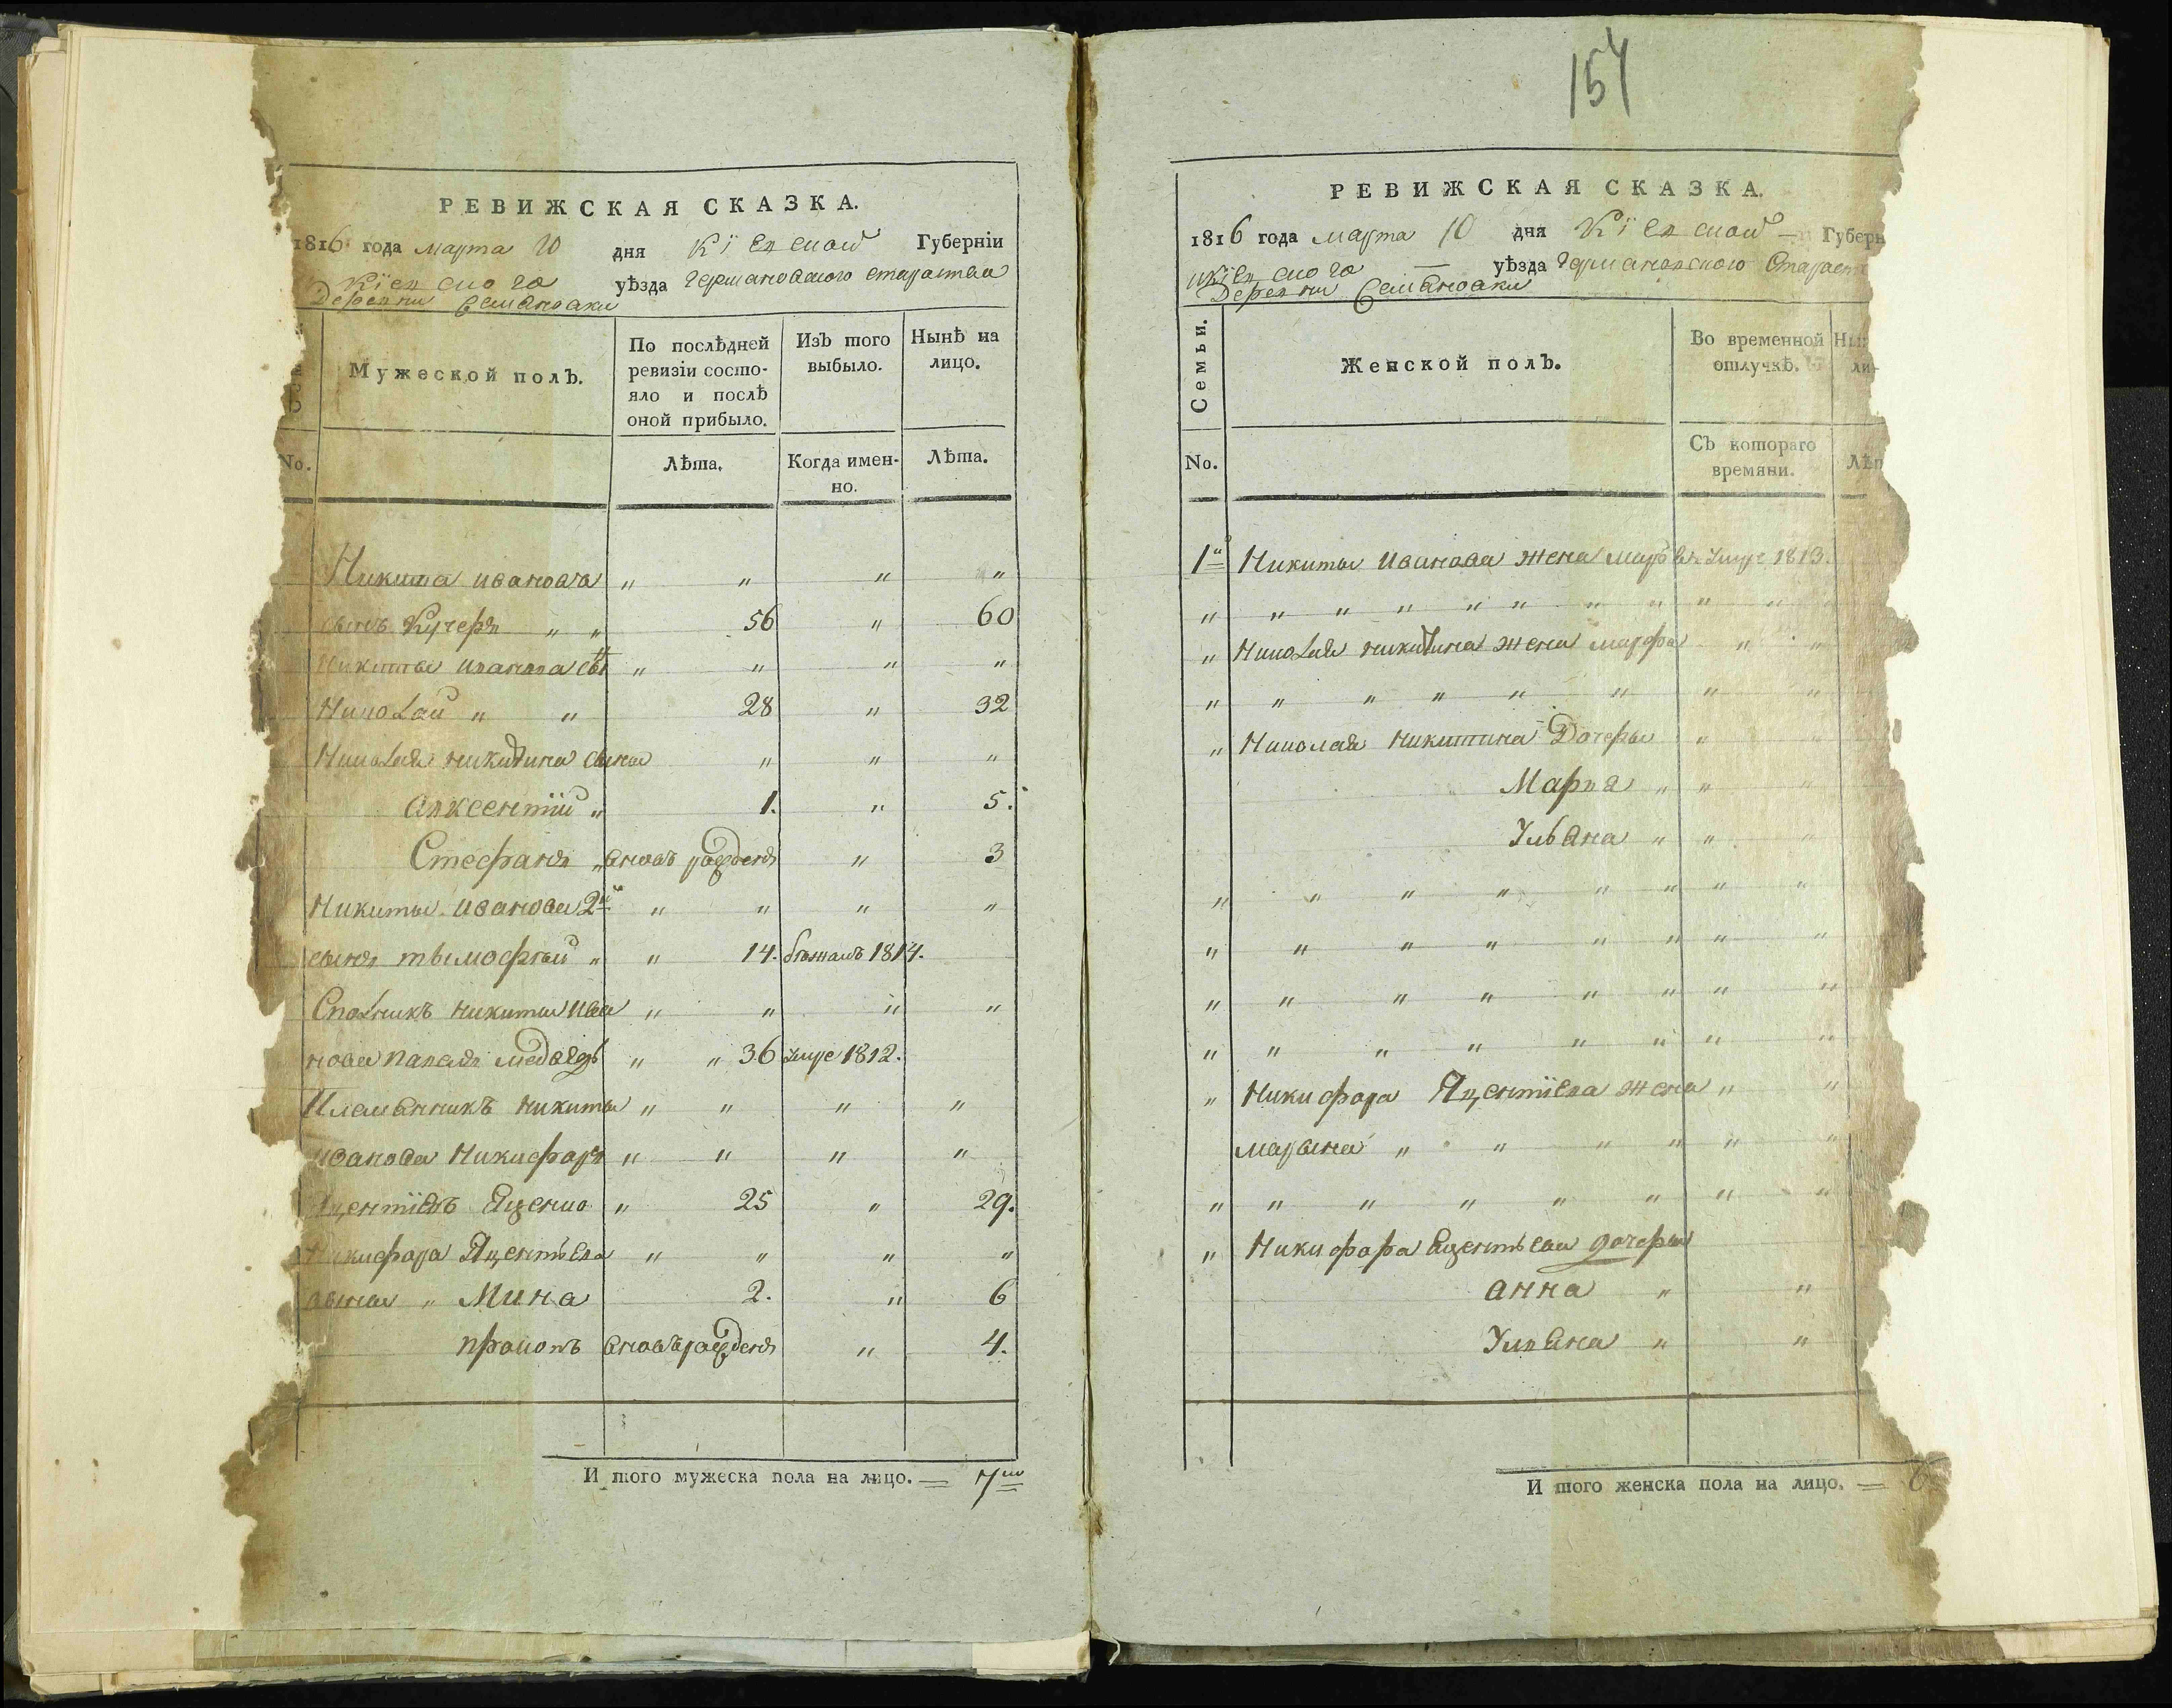 РЕВИЖСКАЯ СКАЗКА.
1816 года марта 10 дня Кіевской Губерніи
Кіевского уѣзда Германовского староства
Деревни Семяновки
Мужеской полъ.
По послѣдней ревизіи состо-
яло и послѣ
оной прибыло.
Изъ того
выбыло.
Нынѣ на
лицо.
No.
Лѣта.
Когда имен-
но.
Лѣта.
Никита иванова " " " "
сынъ Кучеръ " " 56 " 60
Никиты иванова сы " " " "
Николай " " 28 " 32
Николая никитина сыны " " "
авксентій " 1. " 5.
Стефанъ " вновъ рожденъ " 3
Никиты иванова 2й " " " "
сынъ тымофѣй " " 14. бѣжалъ 1814.
Спольникъ никиты ива " " " "
нова павелъ медведь " " 36 умре 1812.
Племянникъ никиты " " " "
иванова Никифоръ " " " "
Яцентіевъ Яценко " 25 " 29.
Никифора Яцентьева " " " "
сыны " Мина 2. " 6
прокопъ вновъ рожденъ " 4.
И того мужеска пола на лицо. 7
154
РЕВИЖСКАЯ СКАЗКА.
1816 года марта 10 дня Кіевской Губерн
Кіевского уѣзда Германовского Старост
Деревни Семяновки
Семьи.
Женской полъ.
Во временной
отлучкѣ.
Ны
ли
No.
Съ котораго
времяни.
Лѣт
1 Никиты иванова жена марья умре 1813.
" " " " " " " " " "
" Николая никитина жена марфа " "
" " " " " " " "
" Николая никитина Дочеры " "
Марья " " "
Ульяна " " "
" " " " " " " "
" " " " " " " "
" " " " " " " "
" " " " " " " "
" Никифора Яцентіева жена " "
марына " " " " " "
" " " " " " " "
" Никифора Яцентьева дочеры
анна " "
Ульяна " "
И того женска пола на лицо.